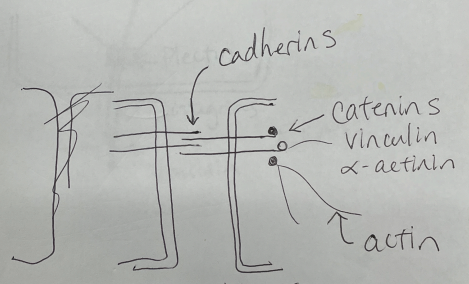 cadherins
catenins
vinculin
α-actinin
actin